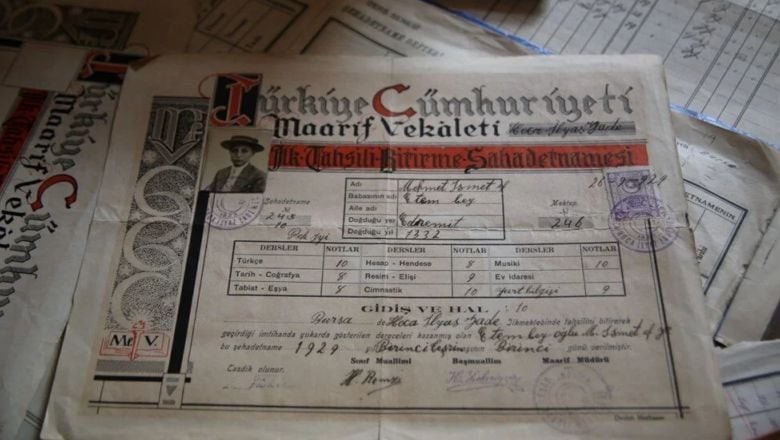 Türkiye Cümhuriyeti
Maarif Vekâleti Hoca İlyas Zade
İlk-Tahsili-Bitirme-Şahadetnamesi
26-9-929
Adı Mehmet İsmet ef
Babasının adı Etem bey
Aile adı
Doğduğu yer Edremit
Doğduğu yıl 1332
Şehadetname
№
245
10
Pek iyi
Mektep
№
246
DERSLER NOTLAR DERSLER NOTLAR DERSLER NOTLAR
Türkçe 10 Hesap - Hendese 8 Musiki 10
Tarih - Coğrafya 8 Resim - Elişi 9 Ev idaresi
Tabiat - Eşya 8 Cimnastik 10 Yurt bilgisi 9
GİDİŞ VE HAL 10
Bursa de Hoca İlyas Zade İlkmektebinde tahsilini bitirerek
geçirdiği imtihanda yukarda gösterilen dereceleri kazanmış olan Etem bey oğlu M. İsmet ef ye
bu şehadetname 1929 yılı Birinci Teşrin ayının birinci günü verilmiştir.
Sınıf Muallimi Başmuallim Maarif Müdürü
Tasdik olunur.
Mf V.
Devlet Matbaası
Türkiye
Maarif Vekâ
Cümh